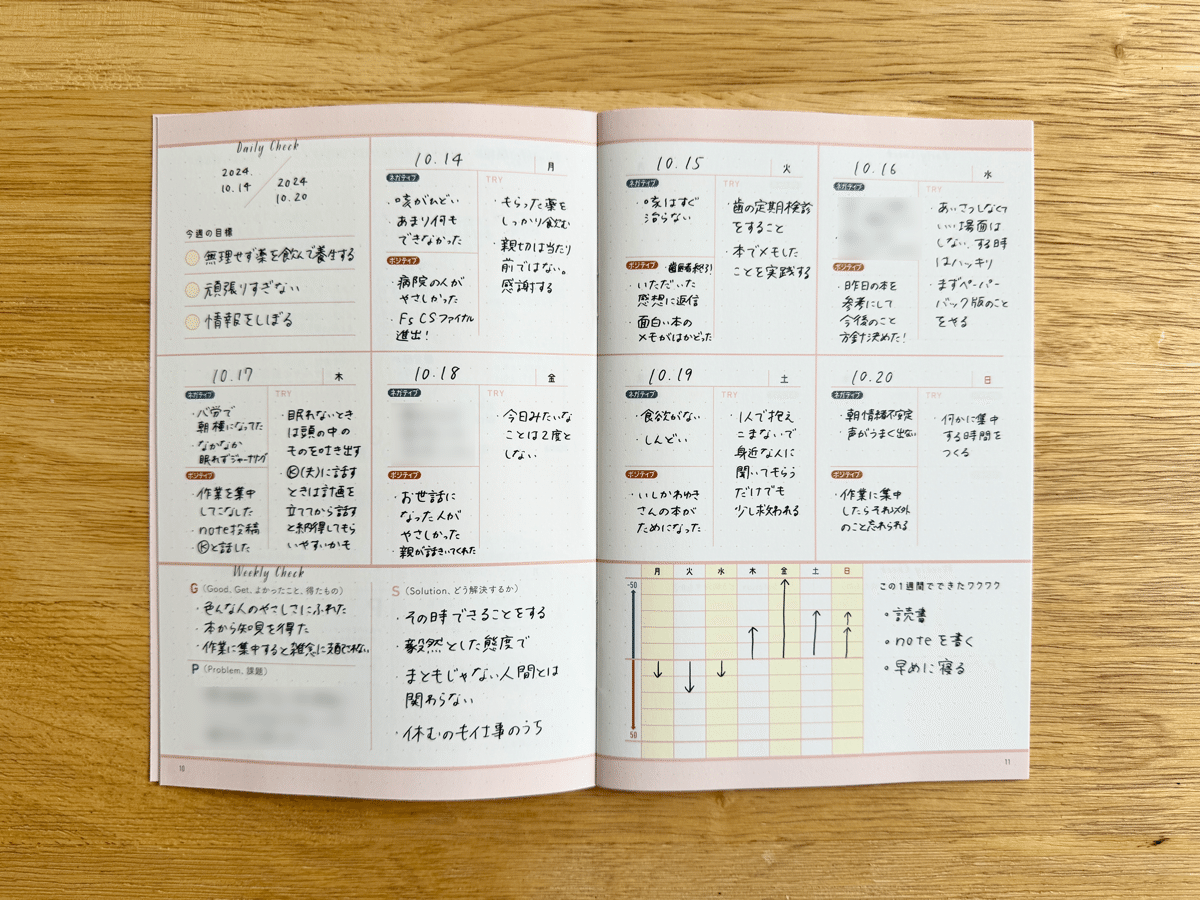 Daily Check
2024.
10.14
2024
10.20
今週の目標
無理せず薬を飲んで養生する
頑張りすぎない
情報をしぼる
10.14
月
ネガティブ
・咳がひどい
・あまり何も
できなかった
ポジティブ
・病院の人が
やさしかった
・Fs CSファイナル
進出!
TRY
・もらった薬を
しっかり飲む
・親切は当たり
前ではない。
感謝する
10.15
火
ネガティブ
・咳はすぐ
治らない
ポジティブ
・歯医者終了!
・いただいた
感想に返信
・面白い本の
メモがはかどった
TRY
・歯の定期検診
をすること
・本でメモした
ことを実践する
10.16
水
ネガティブ
ポジティブ
・昨日の本を
参考にして
今後のこと
方針決めた!
TRY
・あいさつしなくて
いい場面は
しない、する時
はハッキリ
・まずペーパー
バック版のこと
をやる
10.17
木
ネガティブ
・バ労で
朝種になってた
・なかなか
眠れずジャーナリング
ポジティブ
・作業を集中
してこなした
・note投稿
・Ⓚと話した
TRY
・眠れないとき
は頭の中の
ものを吐き出す
・Ⓚ(夫)に話す
ときは計画を
立ててから話す
と納得してもら
いやすいかも
10.18
金
ネガティブ
ポジティブ
・お世話に
なった人が
やさしかった
・親が話きいてくれた
TRY
・今日みたいな
ことは2度と
しない
10.19
土
ネガティブ
・食欲がない
・しんどい
ポジティブ
・いしかわゆき
さんの本が
ためになった
TRY
・1人で抱え
こまないで
身近な人に
聞いてもらう
だけでも
少し救われる
10.20
日
ネガティブ
・朝情緒不安定
・声がうまく出ない
ポジティブ
・作業に集中
したらそれ以外
のこと忘れられる
TRY
・何かに集中
する時間を
つくる
Weekly Check
G (Good, Get, よかったこと、得たもの)
・色んな人のやさしさにふれた
・本から知見を得た
・作業に集中すると雑念に
P (Problem, 課題)
S (Solution, どう解決するか)
・その時できることをする
・毅然とした態度で
・まともじゃない人間とは
関わらない
・休むのも仕事のうち
月 火 水 木 金 土 日
-50
50
この1週間でできたワクワク
・読書
・noteを書く
・早めに寝る
10
11